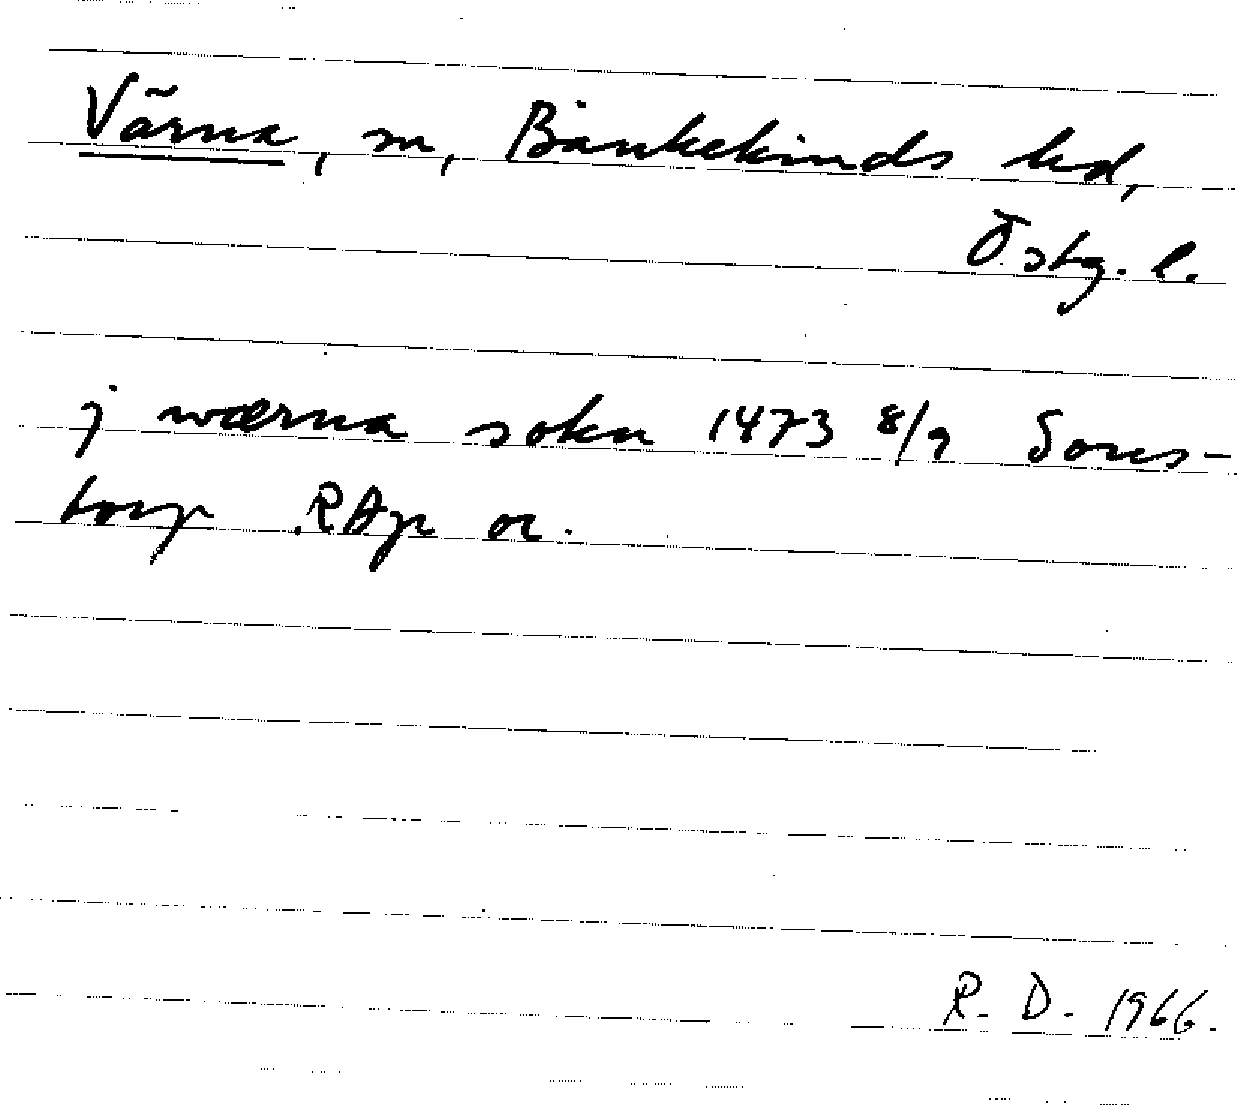 Värna, sn, Bankekinds hd,
Östg. l.
j wærna sokn 1473 8/9 Sons-
torp RAp or.
R. D. 1966.